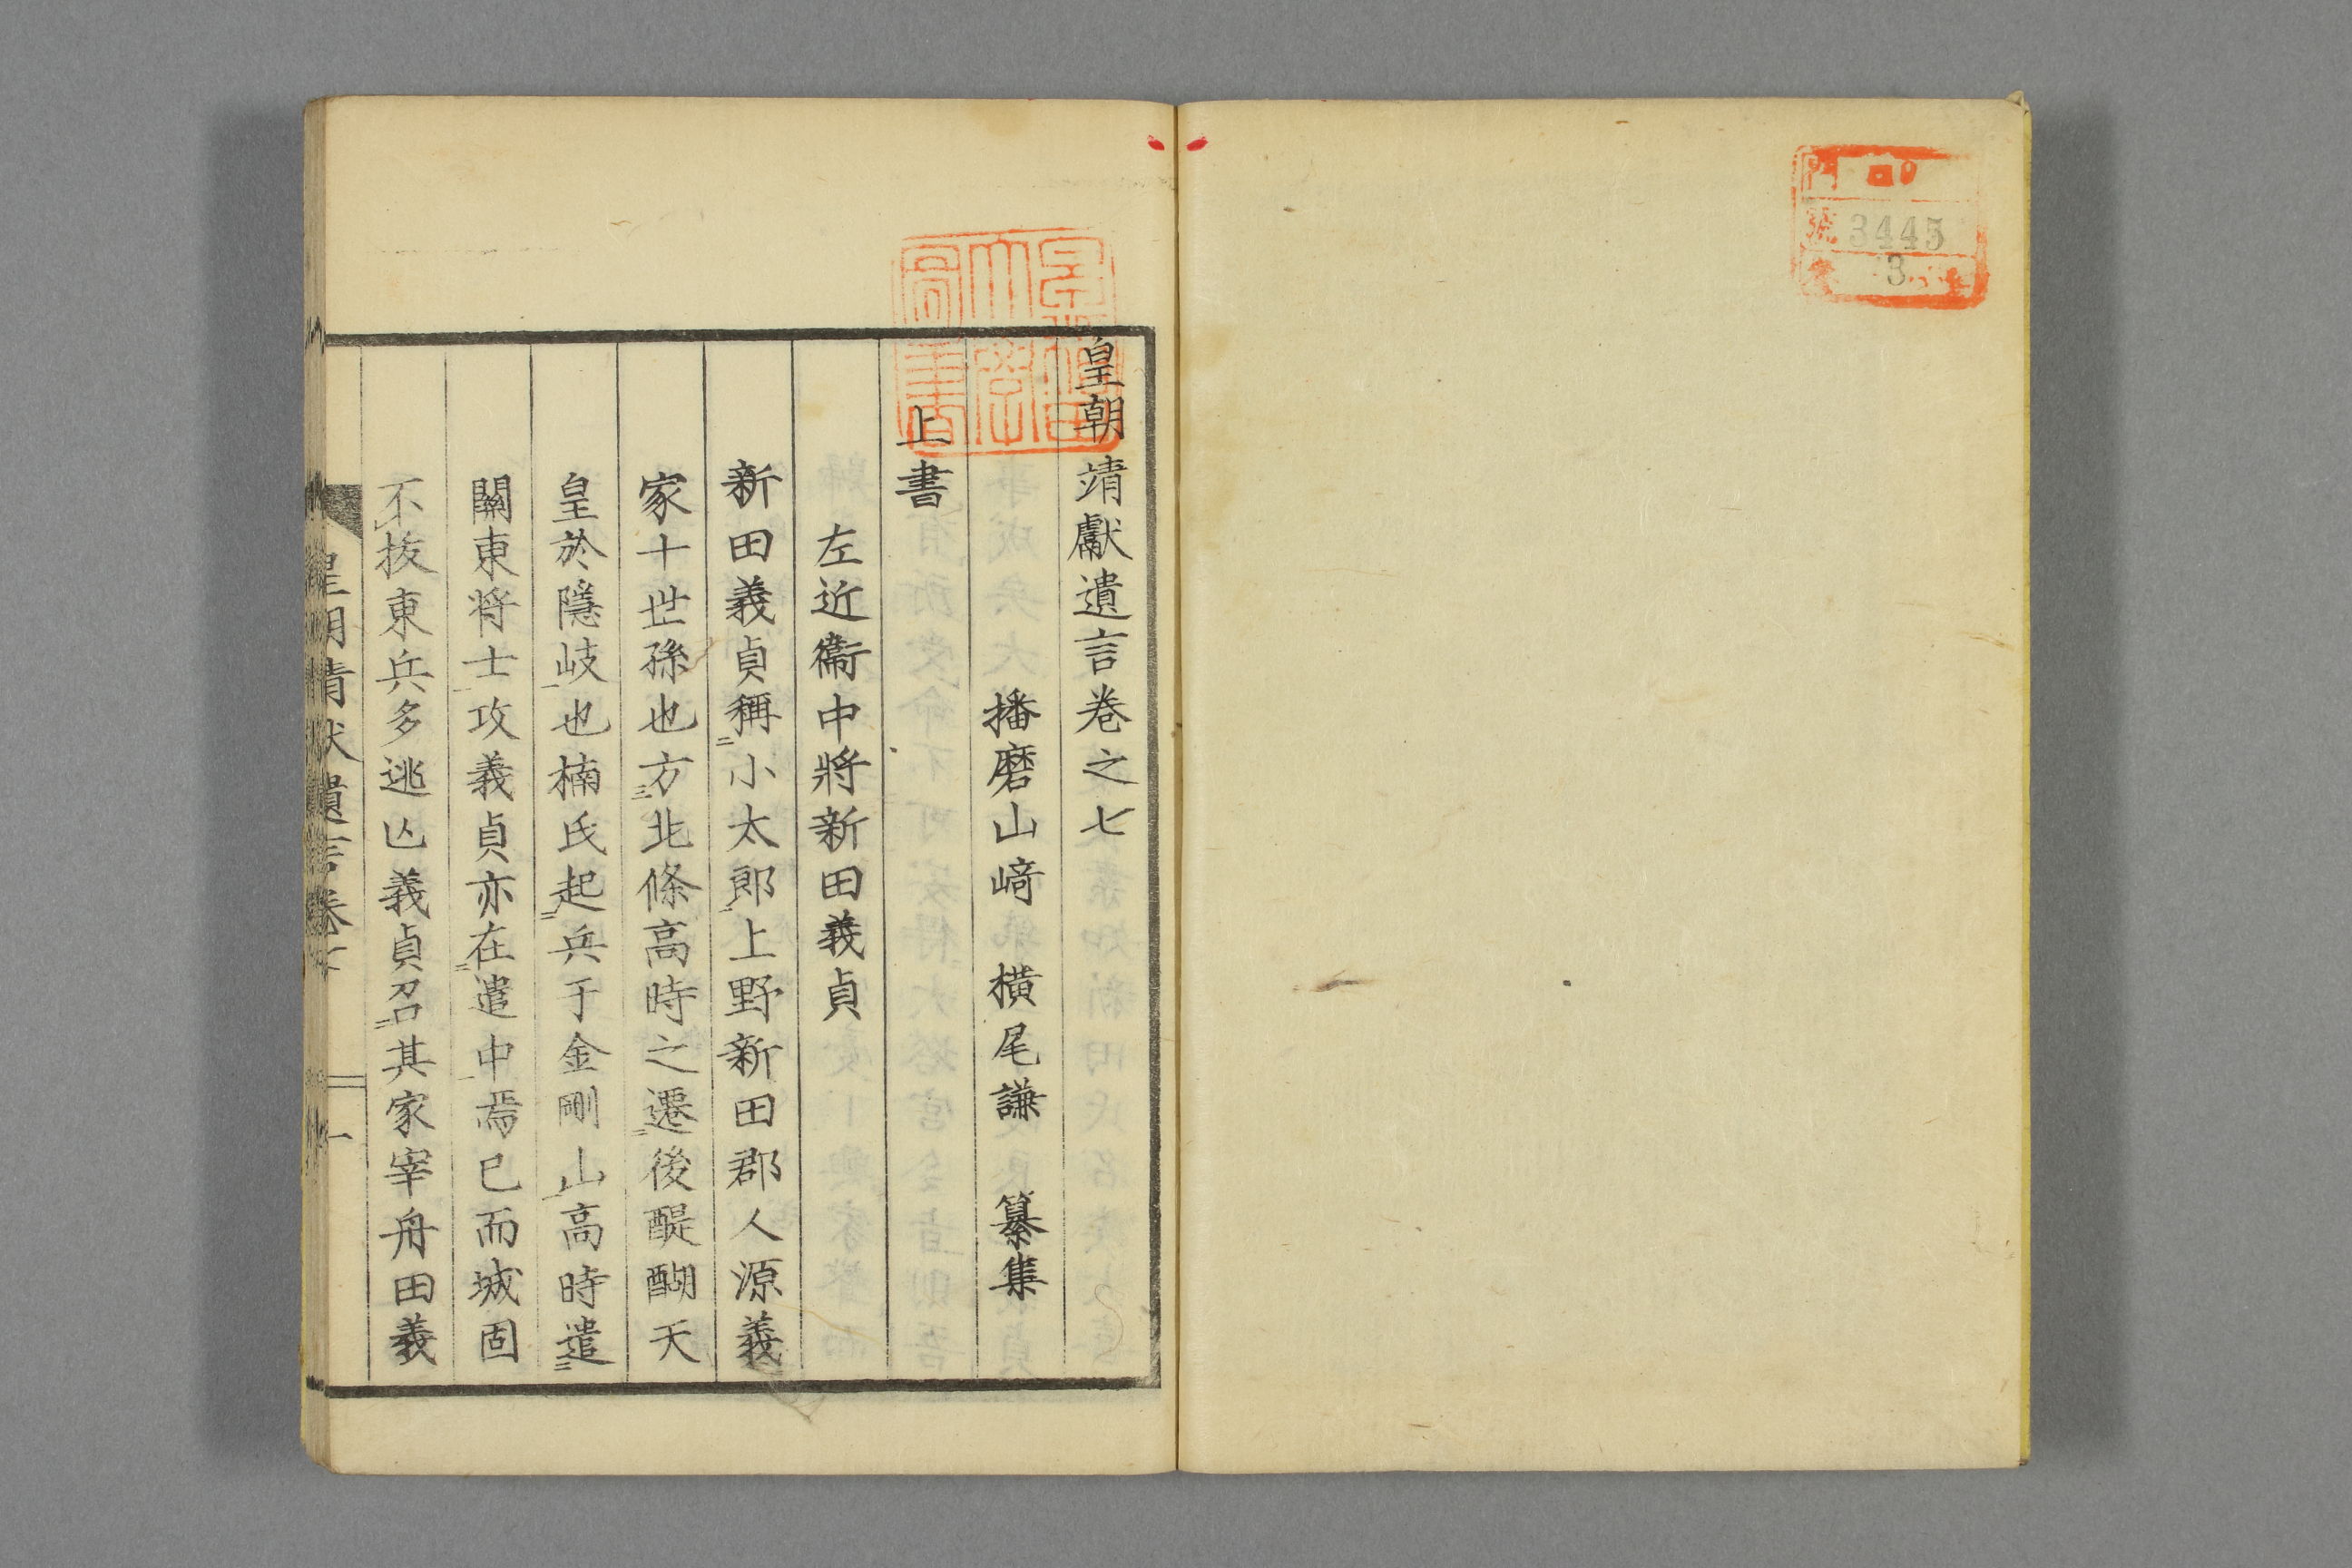 門 口
號 3445
卷 3
皇朝靖獻遺言卷之七
播磨山﨑 横尾謙 纂集
上書
左近衞中將新田義貞
新田義貞稱小太郎上野新田郡人源義
家十世孫也方北條高時之遷後醍醐天
皇於隱岐也楠氏起兵于金剛山高時遣
關東将士攻義貞亦在遣中焉已而城固
不抜東兵多逃亾義貞召其家宰舟田義
皇朝靖献遺言卷七 一